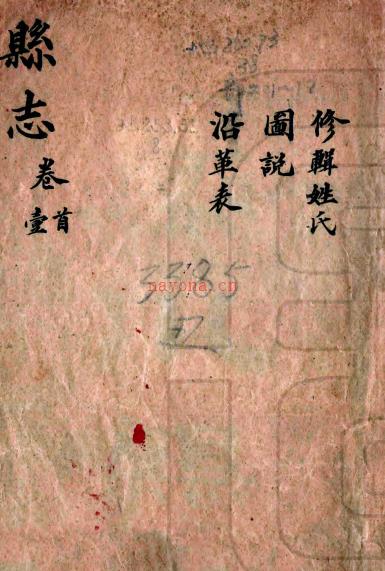 修輯姓氏
圖説
沿革表
縣志
卷首
壹
3385
nayona.cn